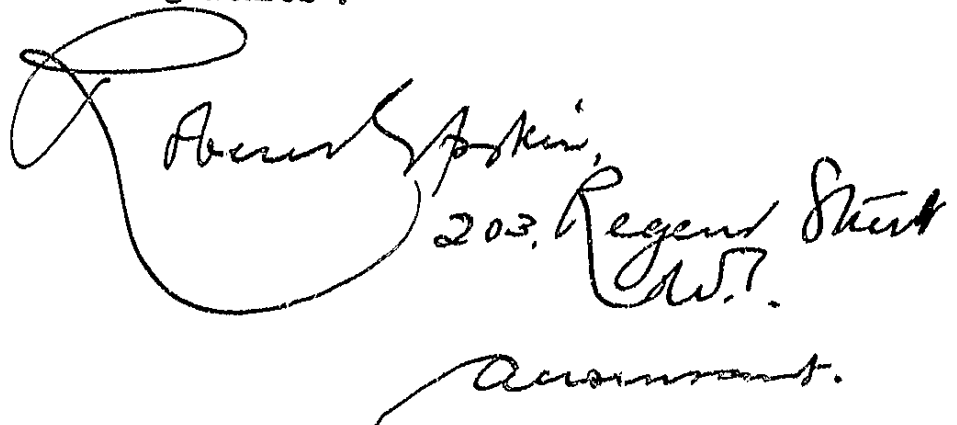 Robert Epstein,
203, Regent Street
W.1.
Accountant.